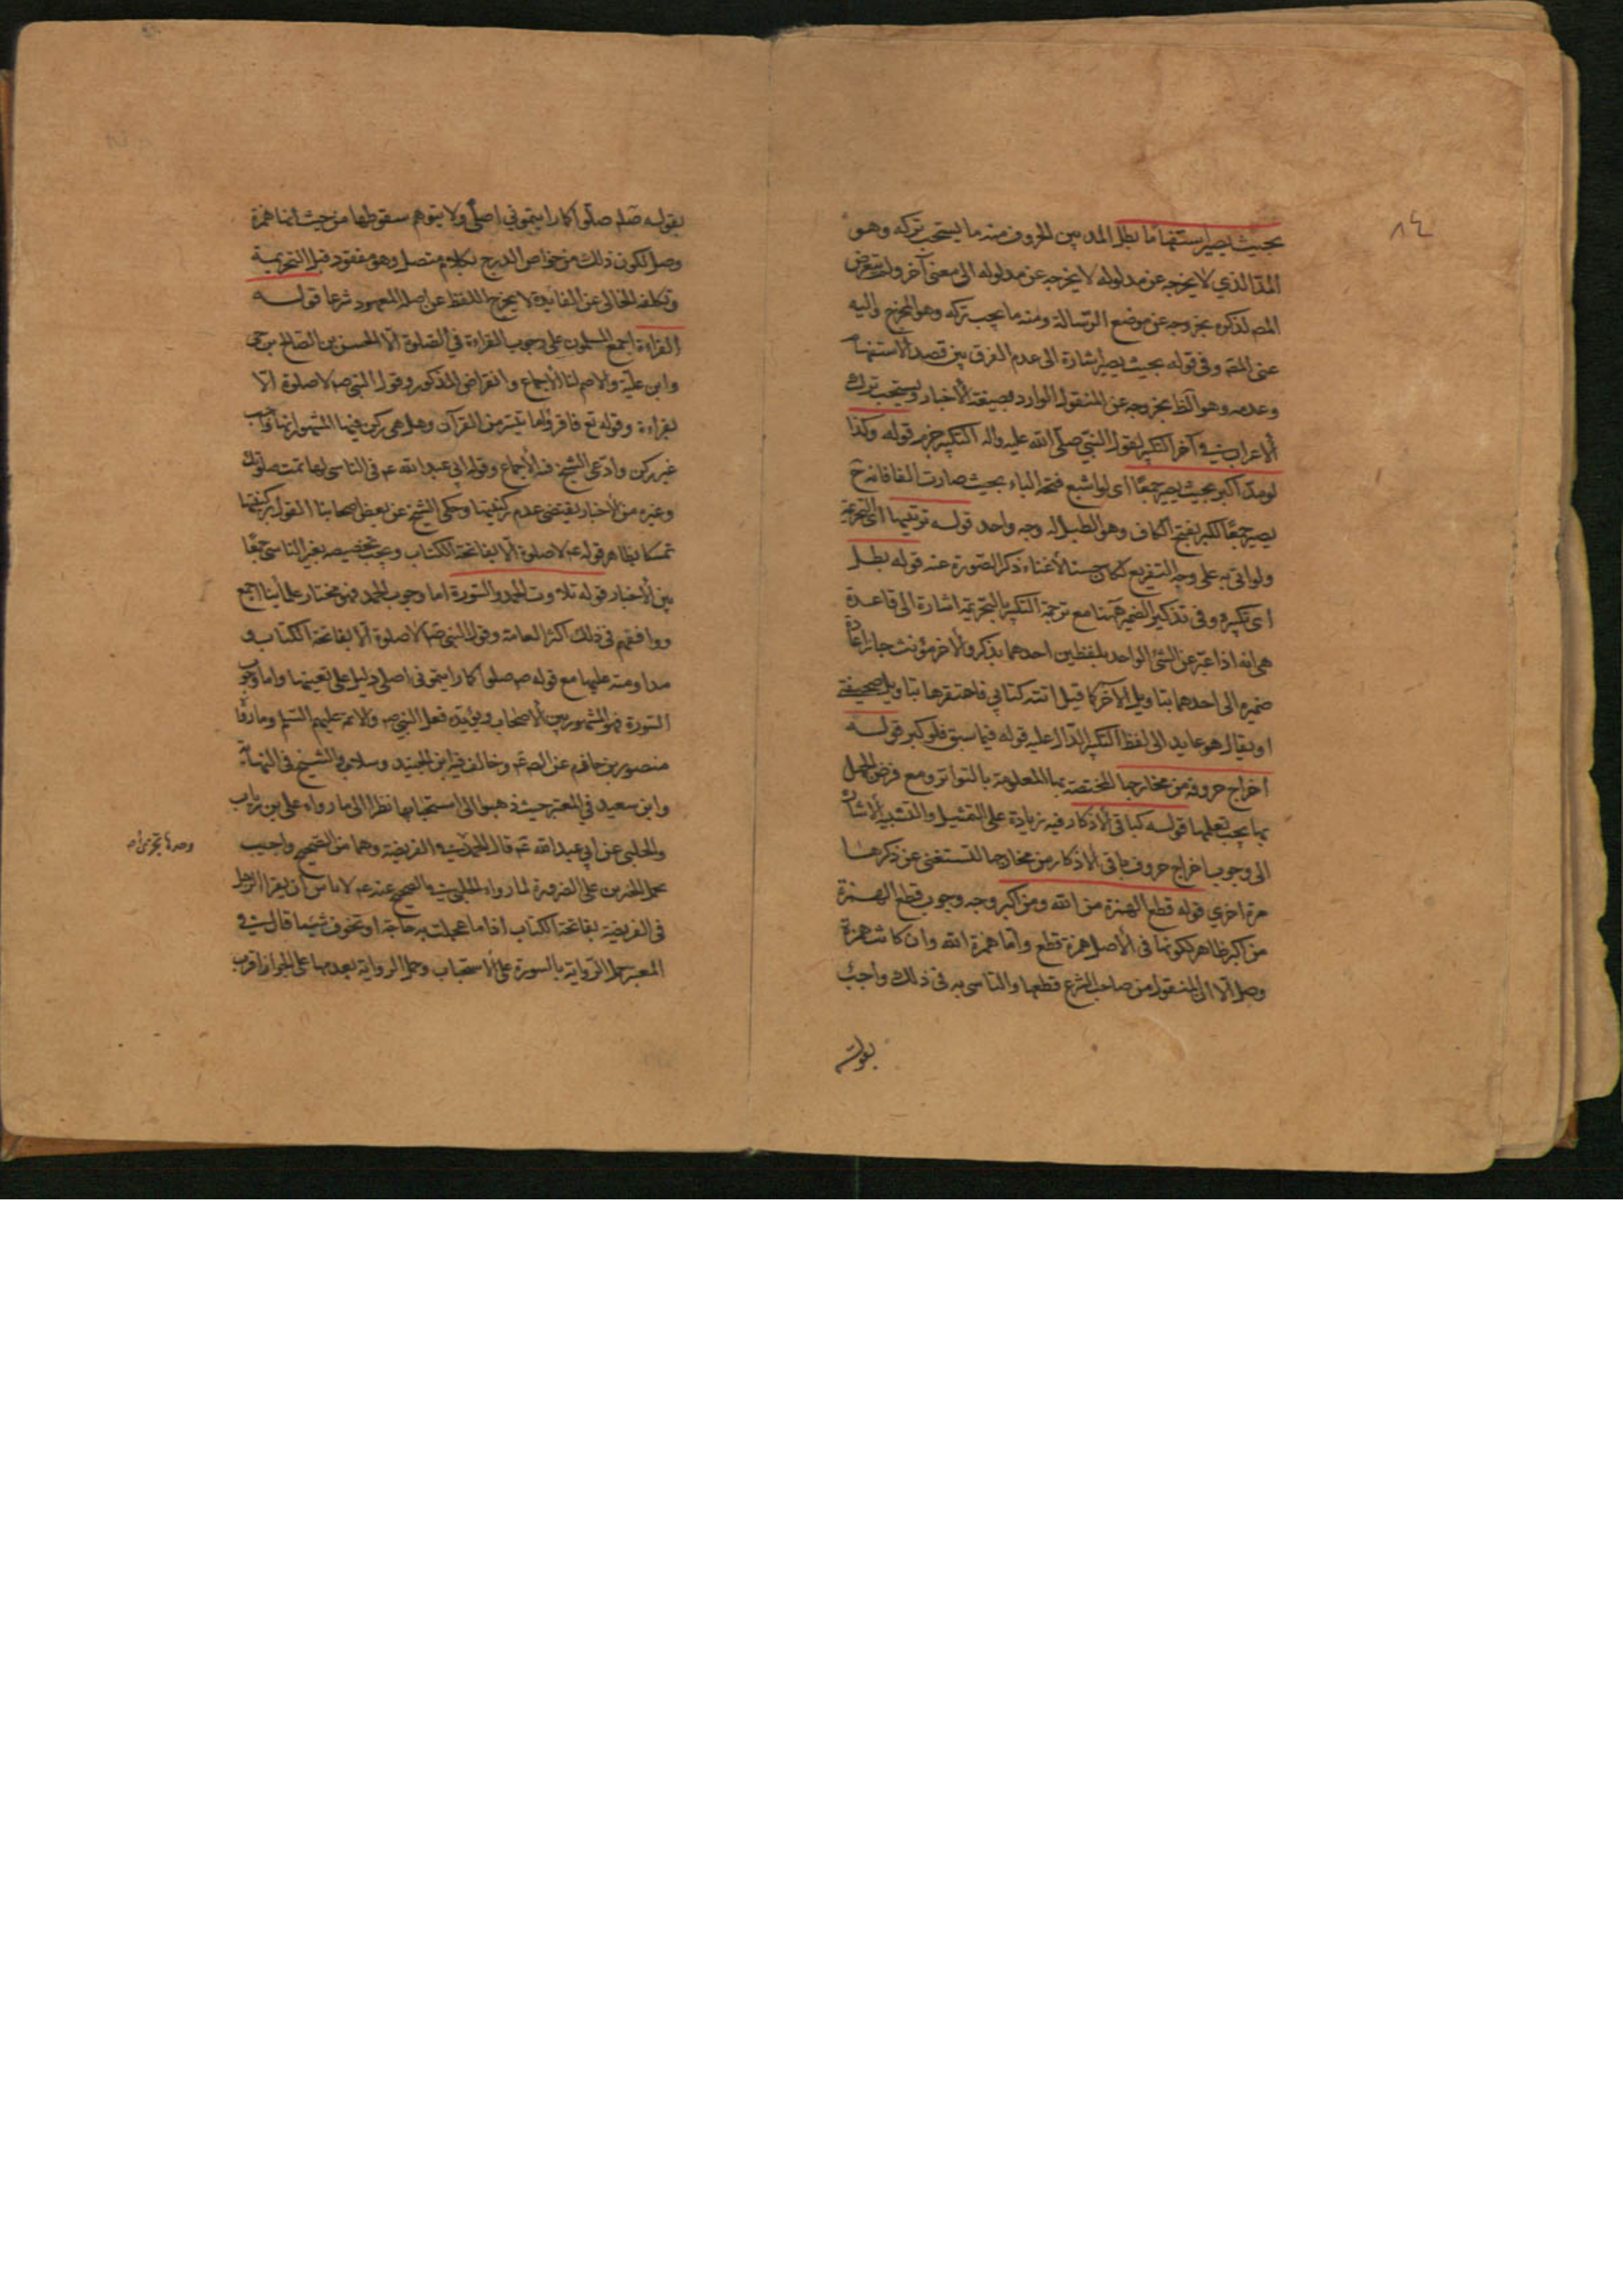 ٨٤
بحيث يصير استفهاما بطل المد بين الحروف منه ما يستحب تركه وهو
المد الذي لا يخرجه عن مدلوله لا يخرجه عن مدلوله الى معنى آخر ولم يتعرض
المص لذكره بخروجه عن موضع الرسالة ومنه ما يجب تركه وهو المخرج واليه
عنى المص وفي قوله بحيث يصير اشارة الى عدم الفرق بين قصد الاستفهام
وعدمه وهو الظ بخروجه عن المنقول الوارد بصيغة الأخبار ويستحب ترك
الأعراب في آخر التكبير لقول النبي صلى الله عليه واله التكبير جزم قوله وكذا
لو مد اكبر بحيث يصير جمعا اى لو اشبع فتحة الباء بحيث صارت الفا فانه ح
يصير جمعا لكبر بفتح الكاف وهو الطبل له وجه واحد قوله ترتيبها اى التحريمة
ولو اتى به على وجه التفريع لكان حسنا لأغناء ذكر الصورة عنه قوله بطل
اى تكبيره وفي تذكير الضمير ههنا مع ترجمة التكبير بالتحريمة اشارة الى قاعدة
هى انه اذا عبر عن الشئ الواحد بلفظين احدهما مذكر والأخر مؤنث جاز اعادة
ضميره الى احدهما بتاويل الآخر كما قيل اتته كتابي فاحتقرها بتاويل صحيفة
او يقال هو عايد الى لفظ التكبير الدال عليه قوله فيما سبق فلو كبر قوله
اخراج حروفه من مخارجها المختصة بها المعلومة بالتواتر ومع فرض الجهل
بها يجب تعلمها قوله كباقي الأذكار فيه زيادة على التمثيل والتشبيه الأشارة
الى وجوب اخراج حروف باقى الأذكار من مخارجها لتستغنى عن ذكرها
مرة اخرى قوله قطع الهمزة من الله ومن اكبر وجه وجوب قطع الهمزة
من اكبر ظاهر لكونها في الأصل همزة قطع واما همزة الله وان كانت همزة
وصل الا ان المنقول من صاحب الشرع قطعها والتاسى به في ذلك واجب
بقوله
بقوله صلم صلوا كما رايتموني اصلى ولا يتوهم سقوطها من حيث انها همزة
وصل لكون ذلك من خواص الدرج بكلام متصل وهو مفقود قبل التحريمة
وتكلفه الخالى عن الفائدة لا يخرج اللفظ عن اصله المعهود شرعا قوله
القراءة اجمع المسلمون على وجوب القراءة في الصلوة الا الحسن بن الصالح بن حى
وابن علية والاصم لنا الأجماع وانقراض المذكور وقول النبي ص لا صلوة الا
بقراءة وقوله تع فاقرؤا ما تيسر من القرآن وهل هي ركن فيها المشهور انها واجب
غير ركن وادعى الشيخ فيه الأجماع وقول ابي عبد الله ع في الناسى لها تمت صلوتك
وغيره من الأخبار يقتضى عدم ركنيتها وحكى الشيخ عن بعض اصحابنا القول بركنيتها
تمسكا بظاهر قوله ع لا صلوة الا بفاتحة الكتاب ويجب تخصيصه بغير الناسى جمعا
بين الأخبار قوله تلاوت الحمد والسورة اما وجوب الحمد فهو مختار علمائنا اجمع
ووافقهم في ذلك اكثر العامة وقول النبي ص لا صلوة الا بفاتحة الكتاب و
مداومته عليها مع قوله ص صلوا كما رايتموني اصلى دليل على تعينها واما وجوب
السورة فهو المشهور بين الأصحاب ويؤيده فعل النبي ص والائمة عليهم السلم وما رواه
منصور بن حازم عن الص ع وخالف فيه ابن الجنيد وسلار والشيخ في النهاية
وابن سعيد في المعتبر حيث ذهبوا الى استحبابها نظرا الى ما رواه على بن رياب
والحلبى عن ابي عبد الله ع قال الحمد في الفريضة وهما من الصحيح واجيب
وحدها تجزى اه
بحمل الخبرين على الضرورة لما رواه الحلبى في الصحيح عنه ع لا باس ان يقرا الرجل
في الفريضة بفاتحة الكتاب اذا ما عجلت به حاجة او تخوف شيئا قال في
المعتبر حمل الرواية بالسورة على الأستحباب وحمل الرواية بعدمها على الجواز اقرب